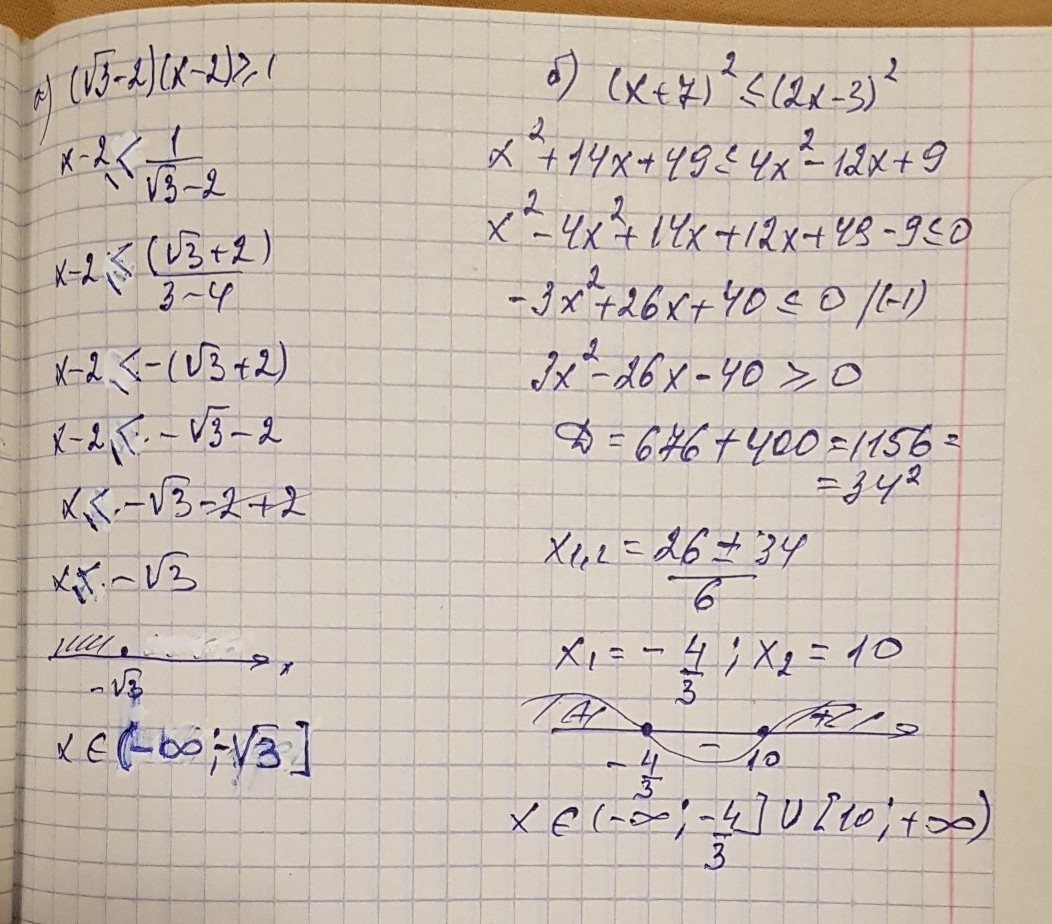 а) (√3-2)(x-2)≥1
x-2 ≤ 1/(√3-2)
x-2 ≤ (√3+2)/(3-4)
x-2 ≤ -(√3+2)
x-2 ≤ -√3-2
x ≤ -√3-2+2
x ≤ -√3
-√3 x
x ∈ (-∞; -√3]
б) (x+7)² ≤ (2x-3)²
x²+14x+49 ≤ 4x²-12x+9
x²-4x²+14x+12x+49-9≤0
-3x²+26x+40 ≤ 0 /(-1)
3x²-26x-40 ≥ 0
D = 676+400=1156=
=34²
x₁,₂ = (26 ± 34)/6
x₁ = -4/3; x₂ = 10
+ - +
-4/3 10
x ∈ (-∞; -4/3] ∪ [10; +∞)